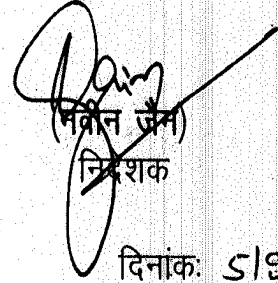 (नवीन जैन)
निदेशक
दिनांकः 5/9